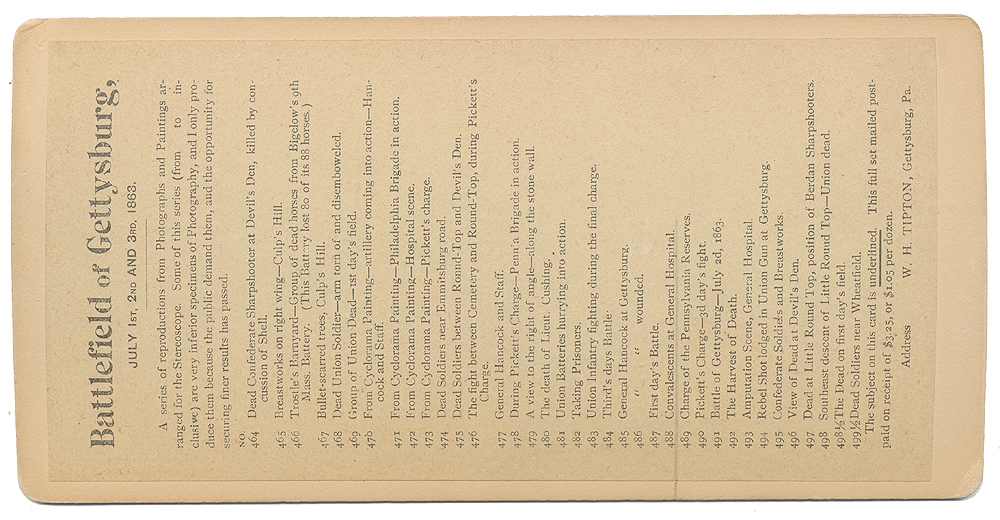 Battlefield of Gettysburg,
JULY 1ST, 2ND AND 3RD, 1863.
A series of reproductions from Photographs and Paintings ar-
ranged for the Stereoscope. Some of this series (from to in-
clusive) are very inferior specimens of Photography, and I only pro-
duce them because the public demand them, and the opportunity for
securing finer results has passed.
NO
464 Dead Confederate Sharpshooter at Devil's Den, killed by con-
cussion of Shell.
465 Breastworks on right wing—Culp's Hill.
466 Trostle's Barnyard—Group of dead horses from Bigelow's 9th
Mass. Battery. (This Battery lost 80 of its 88 horses.)
467 Bullet-scarred trees, Culp's Hill.
468 Dead Union Soldier—arm torn of and disemboweled.
469 Group of Union Dead—1st day's field.
470 From Cyclorama Painting—artillery coming into action—Han-
cock and Staff.
471 From Cyclorama Painting—Philadelphia Brigade in action.
472 From Cyclorama Painting—Hospital scene.
473 From Cyclorama Painting—Pickett's charge.
474 Dead Soldiers near Emmitsburg road.
475 Dead Soldiers between Round-Top and Devil's Den.
476 The fight between Cemetery and Round-Top, during Pickett's
Charge.
477 General Hancock and Staff.
478 During Pickett's Charge—Penn'a Brigade in action.
479 A view to the right of angle—along the stone wall.
480 The death of Lieut. Cushing.
481 Union Batteries hurrying into action.
482 Taking Prisoners.
483 Union Infantry fighting during the final charge.
484 Third's days Battle
485 General Hancock at Gettysburg.
486 " " wounded.
487 First day's Battle.
488 Convalescents at General Hospital.
489 Charge of the Pennsylvania Reserves.
490 Pickett's Charge—3d day's fight.
491 Battle of Gettysburg—July 2d, 1863.
492 The Harvest of Death.
493 Amputation Scene, General Hospital.
494 Rebel Shot lodged in Union Gun at Gettysburg.
495 Confederate Soldiers and Breastworks.
496 View of Dead at Devil's Den.
497 Dead at Little Round Top, position of Berdan Sharpshooters.
498 Southeast descent of Little Round Top—Union dead.
498½ The Dead on first day's field.
499½ Dead Soldiers near Wheatfield.
The subject on this card is underlined. This full set mailed post-
paid on receipt of $3.25, or $1.05 per dozen.
Address W. H. TIPTON, Gettysburg, Pa.